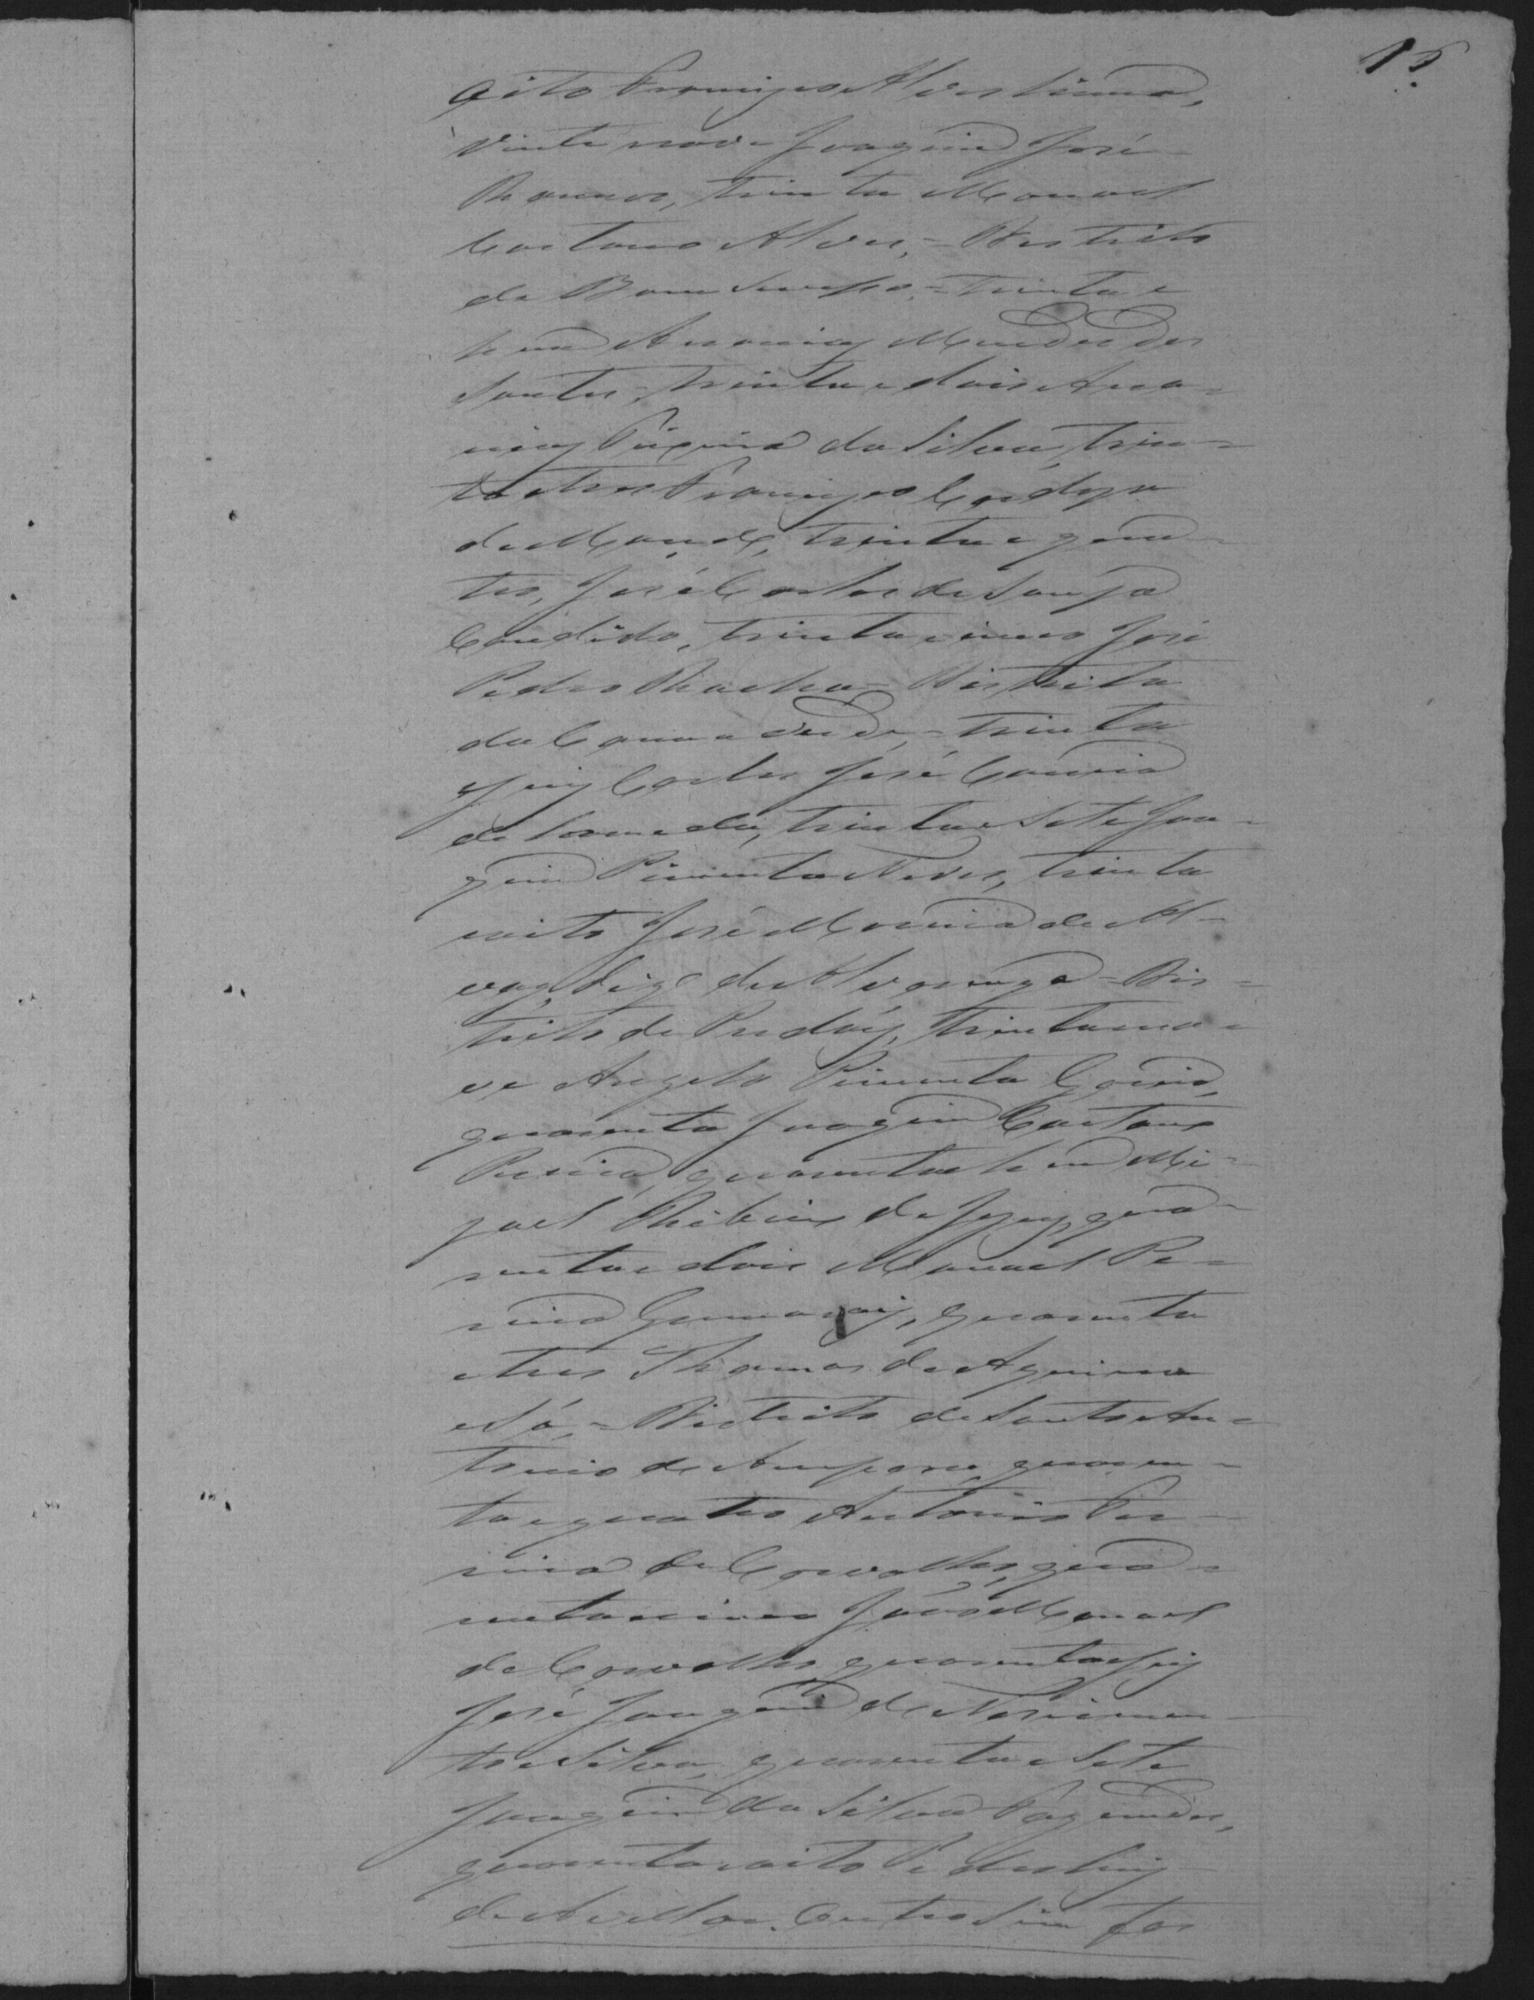 15
oito Francisco Alves Lima,
vinte nove Joaquim José
Ramos, trinta Manoel
Caetano Alves, = Districto
de Bom Sucesso, = trinta e
hum Ananias Mendes dos
Santos, trinta e dois Ana-
nias Pereira da Silva, trin-
ta e tres Francisco Cardozo
de trinta e qua-
tro, José Carlos de Souza
Candido, trinta e cinco José
Pedro Rocha = Districto
da Canna verde, = trinta
e seis Carlos José Correia
de trinta e sete Joa-
quim Pimenta Neves, trinta
e oito José Maria de
de Alvarenga = Dis-
tricto de trinta e no-
ve Angelo Pimenta
quarenta Joaquim Caetano
Pereira, quarenta e hum Mi-
guel Ribeiro de qua-
renta e dois Manoel Pe-
reira quarenta
e tres Thomas de Aquino
e Sá, = Districto de Santo An-
tonio do Amparo quaren-
ta e quatro Antonio Pe-
reira de Carvalho, qua-
renta e cinco João Manoel
de Carvalho, quarenta e seis
José Joaquim do Nascimen-
to e Silva, quarenta e sete
Joaquim da Silva Fagundes,
quarenta e oito Pedro Luis
de Avellar. Outro Sim